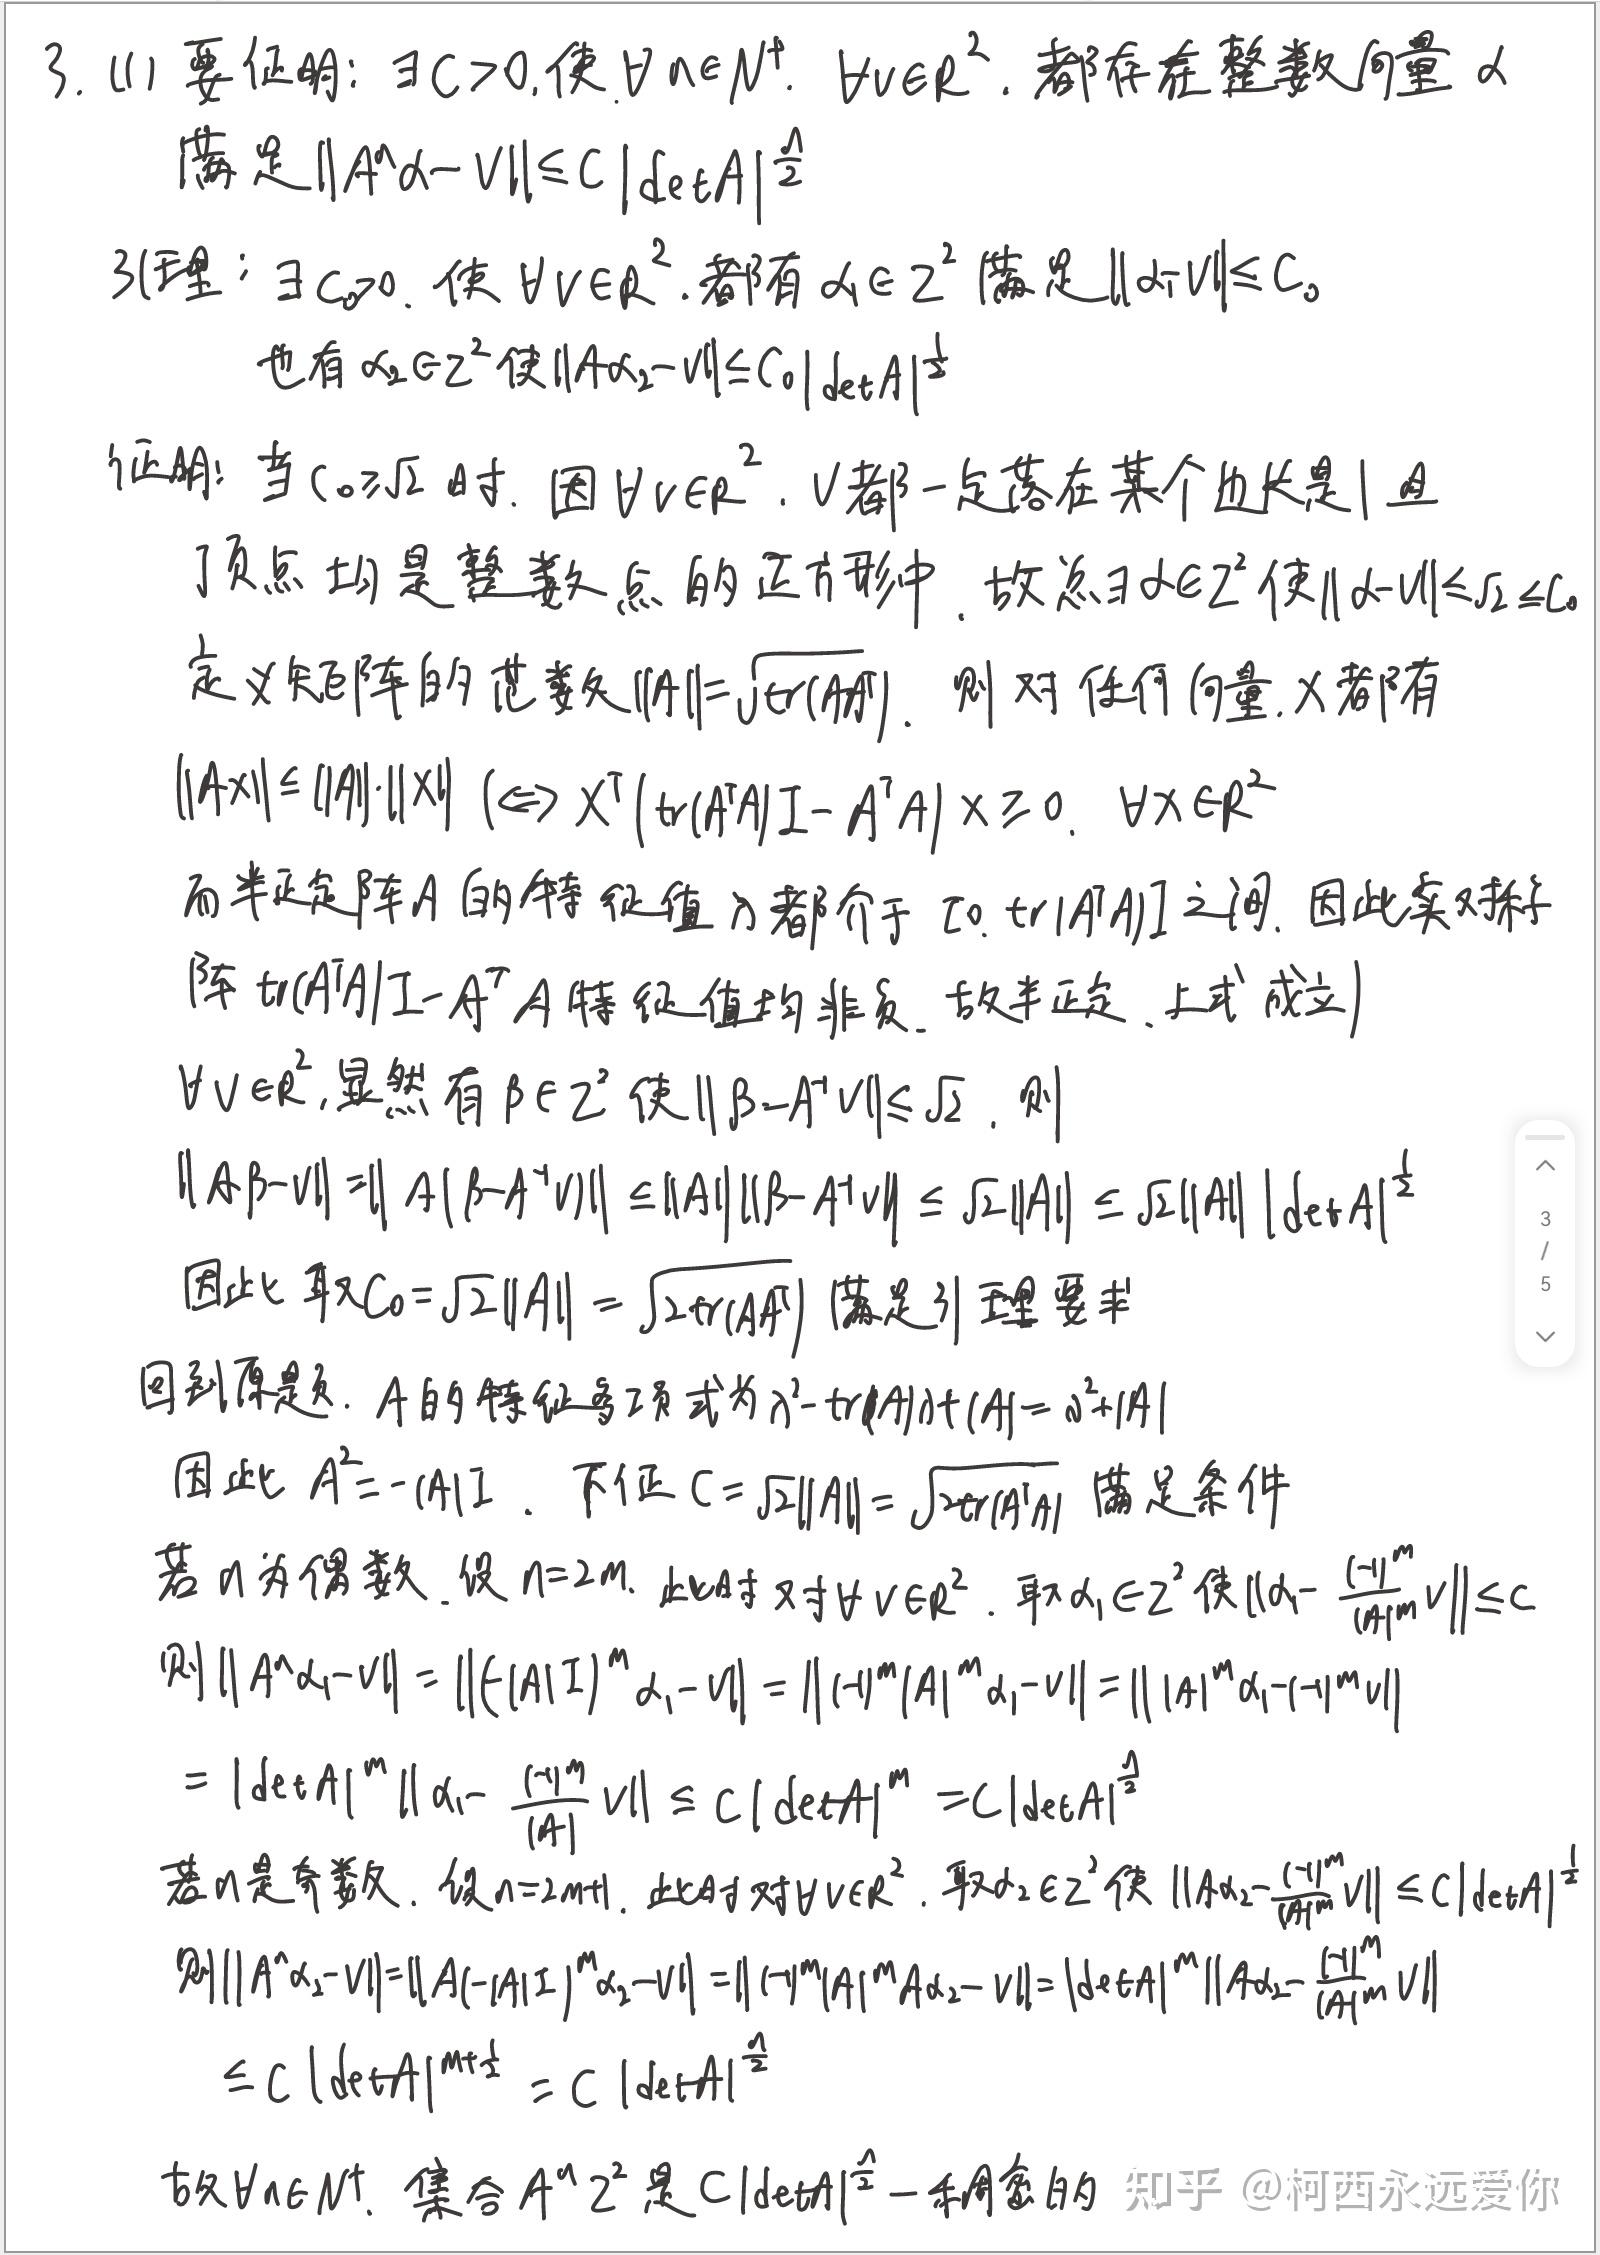 3. (1) 要证明: ∃C>0,使 ∀n∈N⁺. ∀v∈R². 都存在整数向量 α
满足‖Aⁿα-v‖≤C|detA|^{n/2}
引理: ∃C₀>0. 使 ∀v∈R².都有 α₁∈Z² 满足‖α₁-v‖≤C₀
也有 α₂∈Z² 使‖Aα₂-v‖≤C₀|detA|^{1/2}
证明: 当 C₀≥√2 时. 因 ∀v∈R². v都一定落在某个边长是1且
顶点均是整数点的正方形中. 故总∃α∈Z²使‖α-v‖≤√2≤C₀
定义矩阵的范数‖A‖=√tr(AAᵀ). 则对任何向量.x都有
‖Ax‖≤‖A‖·‖x‖ (⇔ xᵀ(tr(AᵀA)I-AᵀA)x≥0. ∀x∈R²
而半正定阵A的特征值λ都介于[0.tr(AᵀA)]之间. 因此实对称
阵 tr(AᵀA)I-AᵀA特征值均非负. 故半正定.上式成立)
∀v∈R²,显然有β∈Z²使‖β-A⁻¹v‖≤√2. 则
‖Aβ-v‖=‖A(β-A⁻¹v)‖≤‖A‖‖β-A⁻¹v‖≤√2‖A‖≤√2‖A‖|detA|^{1/2}
因此取C₀=√2‖A‖=√2tr(AAᵀ) 满足引理要求
回到原题. A的特征多项式为λ²-tr(A)λ+|A|=λ²+|A|
因此 A²=-|A|I. 下证 C=√2‖A‖=√2tr(AᵀA) 满足条件
若n为偶数.设n=2m. 此时对∀v∈R². 取α₁∈Z²使‖α₁-\frac{(-1)^m}{|A|^m}v‖≤C
则‖Aⁿα₁-v‖=‖(-|A|I)^mα₁-v‖=‖(-1)^m|A|^mα₁-v‖=‖|A|^mα₁-(-1)^mv‖
=|detA|^m‖α₁-\frac{(-1)^m}{|A|}v‖≤C|detA|^m=C|detA|^{n/2}
若n是奇数. 设n=2m+1. 此时对∀v∈R². 取α₂∈Z²使‖Aα₂-\frac{(-1)^m}{|A|^m}v‖≤C|detA|^{1/2}
则‖Aⁿα₂-v‖=‖A(-|A|I)^mα₂-v‖=‖(-1)^m|A|^mAα₂-v‖=|detA|^m‖Aα₂-\frac{(-1)^m}{|A|^m}v‖
≤C|detA|^{m+1/2}=C|detA|^{n/2}
故∀n∈N⁺. 集合AⁿZ²是C|detA|^{n/2}-稠密的
知乎 @柯西永远爱你
3
/
5